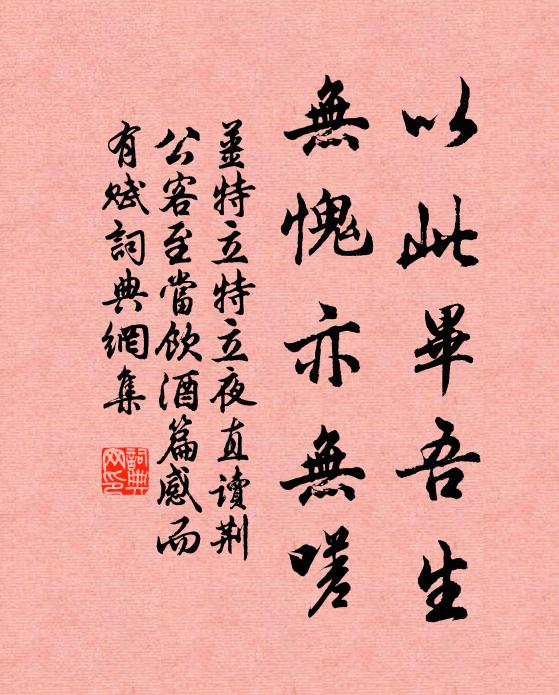 以此畢吾生
無愧亦無嗟
姜特立特立夜直讀荆
公客至當飲酒篇感而
有賦詞典網集
詞典網印